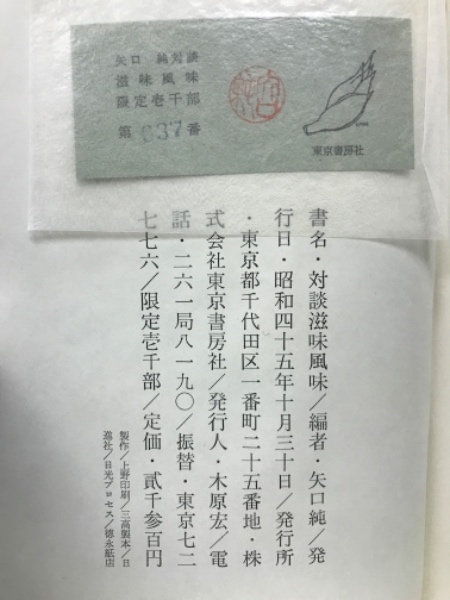 矢口 純対談
滋味風味
限定壱千部
第 637 番
東京書房社
書名・対談滋味風味/編者・矢口純/発
行日・昭和四十五年十月三十日/発行所
・東京都千代田区一番町二十五番地・株
式会社東京書房社/発行人・木原宏/電
話・二六一局八一九〇/振替・東京七二
七七六/限定壱千部/定価・貳千参百円
製作/上野印刷/三高製本/日
進社/日光プロセス/徳永紙店